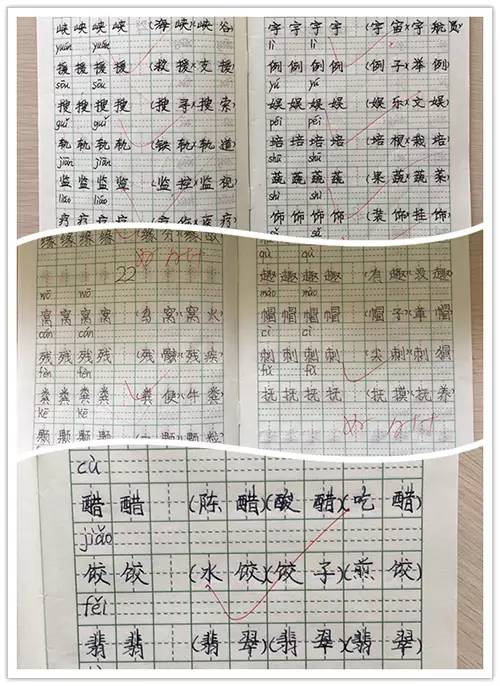 峡 峡 峡 峡 (海 峡)(峡 谷)
yuán yuán
援 援 援 援 (救 援)(支 援)
sōu sōu
搜 搜 搜 搜 (搜 寻)(搜 索)
guǐ guǐ
轨 轨 轨 轨 (铁 轨)(轨 道)
jiān jiān
监 监 监 监 (监 控)(监 视)
liáo liáo
疗 疗 疗 疗
宇 宇 宇 宇 (宇 宙)(宇 航 员)
lì lì
例 例 例 例 (例 子)(举 例)
yú yú
娱 娱 娱 娱 (娱 乐)(文 娱)
péi péi
培 培 培 培 (培 根)(栽 培)
shū shū
蔬 蔬 蔬 蔬 (果 蔬)(蔬 菜)
shì shì
饰 饰 饰 饰 (装 饰)(挂 饰)
缘 缘 缘 缘
22
wō wō
窝 窝 窝 窝 (鸟 窝)(窝 火)
cán cán
残 残 残 残 (残 骸)(残 疾)
fèn fèn
粪 粪 粪 粪 (粪 便)(牛 粪)
kē kē
颗 颗 颗 颗
qù qù
趣 趣 趣 趣 (有 趣)(没 趣)
mào mào
帽 帽 帽 帽 (帽 子)(草 帽)
cì cì
刺 刺 刺 刺 (尖 刺)(刺 猬)
fǔ fǔ
抚 抚 抚 抚 (抚 摸)(抚 养)
cù
醋 醋 (陈 醋)(酸 醋)(吃 醋)
jiǎo
饺 饺 (水 饺)(饺 子)(煎 饺)
fěi
翡 翡 (翡 翠)(翡 翠)(翡 翠)